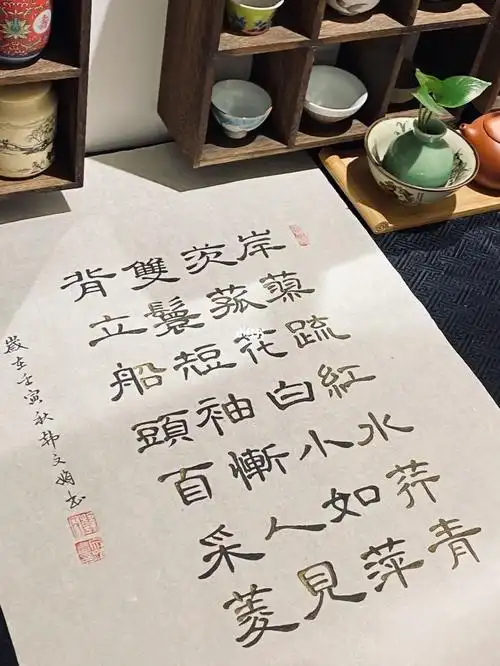 岸蓼疏紅水荇青
茨菰花白小如萍
雙鬟短袖慚人見
背立船頭自采菱
歲在壬寅秋韩文娟书